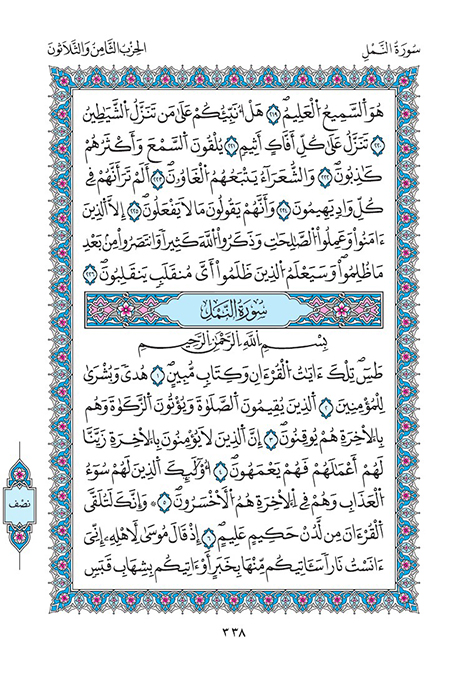 سُورَةُ النَّمْلِ
الحِزْبُ الثَّامِنُ وَالثَّلَاثُونَ
هُوَ اَلسَّمِيعُ اُلْعَلِيمُ ٢١٩ هَلُ انَبِّئُكُمْ عَلَىٰ مَن تَنَزَّلُ اُلشَّيَٰطِينُ
٢٢٠ تَنَزَّلُ عَلَىٰ كُلِّ أَفَّاكٍ اَثِيمٖ ٢٢١ يُلْقُونَ اَلسَّمْعَ وَأَكْثَرُهُمْ
كَٰذِبُونَ ٢٢٢ وَالشُّعَرَآءُ يَتْبَعُهُمُ اُلْغَاوُۥنَ ٢٢٣ أَلَمْ تَرَ أَنَّهُمْ فِے
كُلِّ وَادٖ يَهِيمُونَ ٢٢٤ وَأَنَّهُمْ يَقُولُونَ مَا لَا يَفْعَلُونَ ٢٢٥ إِلَّا اَلذِينَ
ءَامَنُواْ وَعَمِلُواْ اُلصَّٰلِحَٰتِ وَذَكَرُواْ اُللَّهَ كَثِيراٗ وَانتَصَرُواْ مِنۢ بَعْدِ
مَا ظُلِمُواْ وَسَيَعْلَمُ اُلذِينَ ظَلَمُواْ أَيَّ مُنقَلَبٖ يَنقَلِبُونَ ٢٢٦
سُورَةُ النَّمْلِ
بِسْمِ اِللَّهِ اِلرَّحْمَٰنِ اِلرَّحِيمِ
طَسِٓ تِلْكَ ءَايَٰتُ اُلْقُرْءَانِ وَكِتَابٖ مُّبِينٍ ١ هُدىٗ وَبُشْرَىٰ
لِلْمُؤْمِنِينَ ٢ اَلذِينَ يُقِيمُونَ اَلصَّلَوٰةَ وَيُؤْتُونَ اَلزَّكَوٰةَ وَهُم
بِالْأٓخِرَةِ هُمْ يُوقِنُونَ ٣ إِنَّ اَلذِينَ لَا يُؤْمِنُونَ بِالْأٓخِرَةِ زَيَّنَّا
لَهُمُ أَعْمَٰلَهُمْ فَهُمْ يَعْمَهُونَ ٤ أُوْلَٰٓئِكَ اَلذِينَ لَهُمْ سُوٓءُ
اُلْعَذَابِ وَهُمْ فِے اِلْأٓخِرَةِ هُمُ اُلْأَخْسَرُونَ ٥ وَإِنَّكَ لَتُلَقَّى
اَلْقُرْءَانَ مِن لَّدُنْ حَكِيمٍ عَلِيمٍ ٦ إِذْ قَالَ مُوسَىٰ لِأَهْلِهِۦٓ إِنِّيَ
ءَانَسْتُ نَاراٗ سَـَٔاتِيكُم مِّنْهَا بِخَبَرٍ أَوَ ـاتِيكُم بِشِهَابِ قَبَسٖ
نصف
٣٣٨